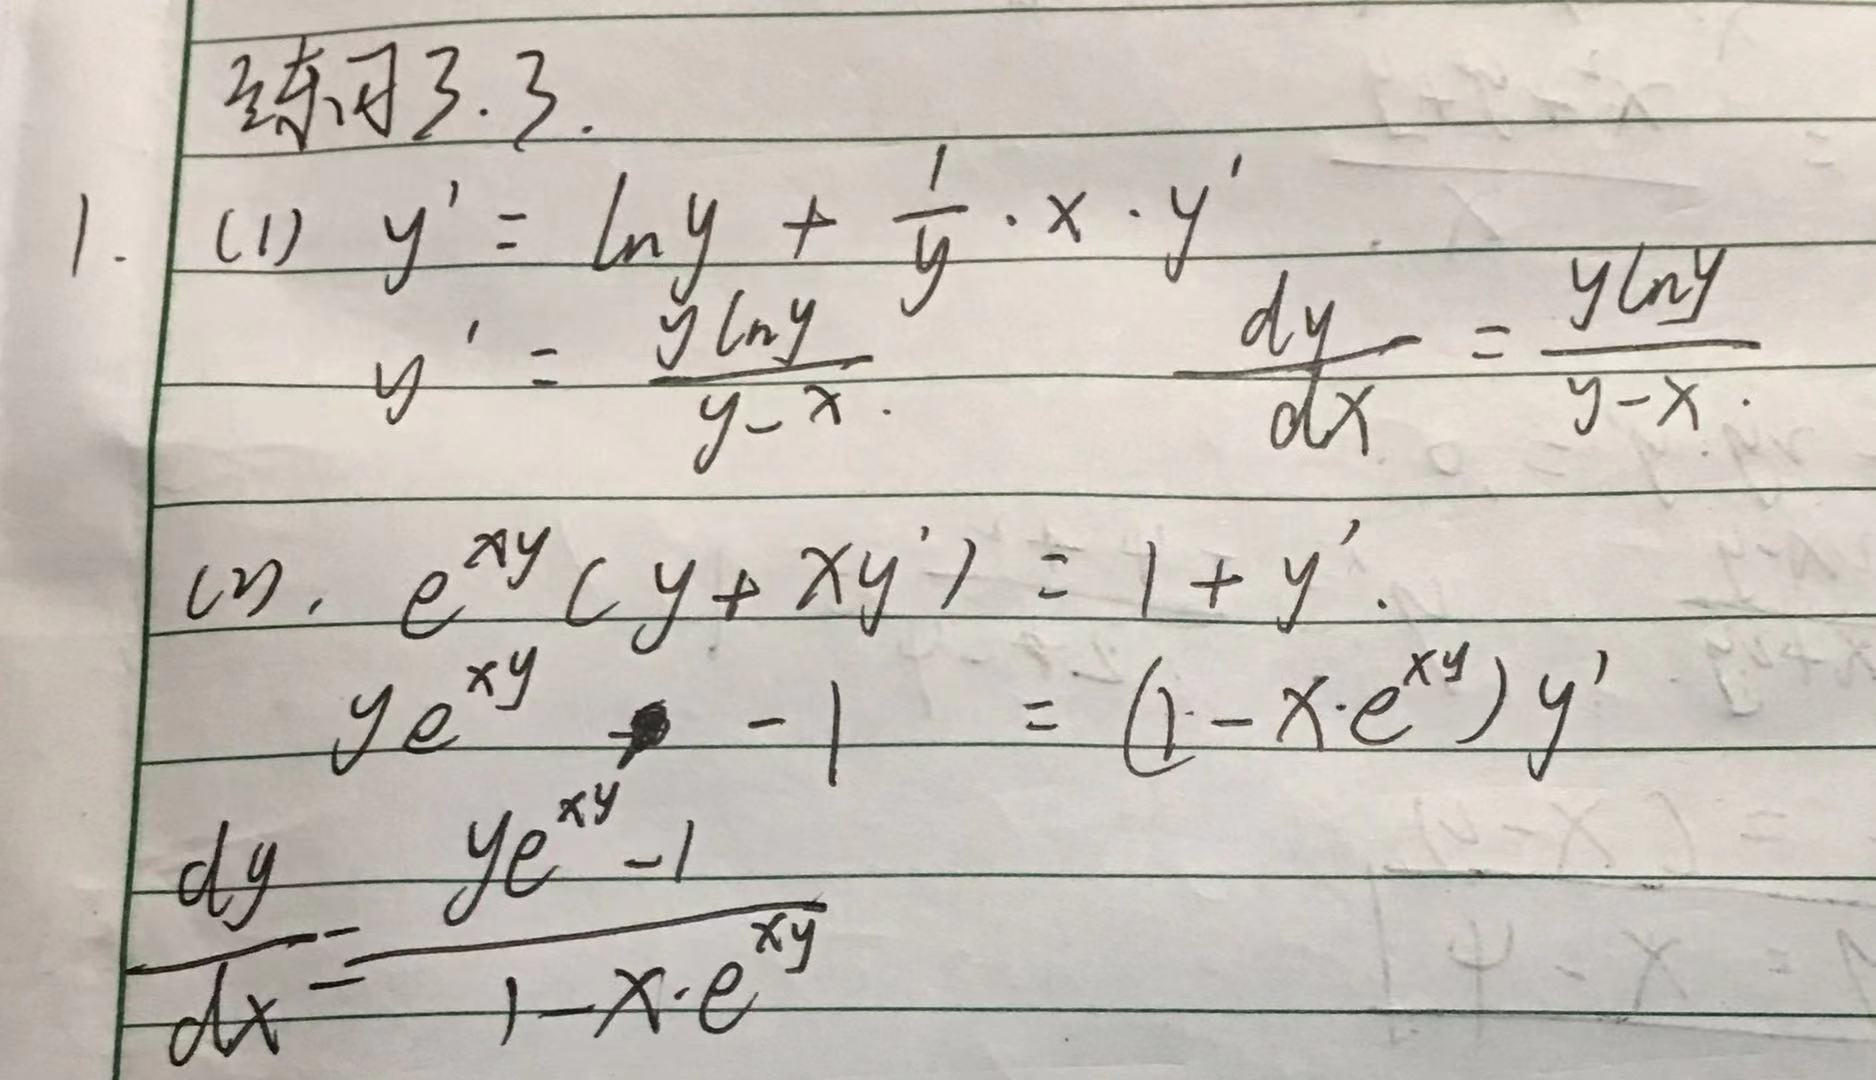 练习3.3.
1. (1) y' = ln y + 1/y · x · y'
y' = y ln y / y - x . dy/dx = y ln y / y - x .
(2). e^xy (y + xy') = 1 + y'.
ye^xy - 1 = (1 - x·e^xy) y'
dy/dx = ye^xy - 1 / 1 - x·e^xy